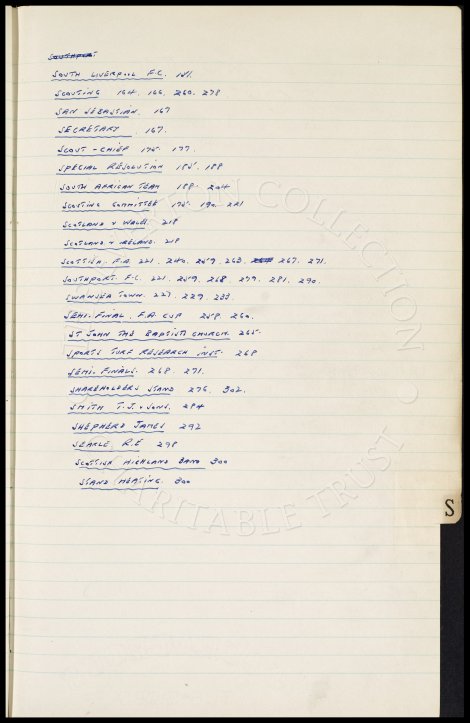 SOUTH LIVERPOOL F.C. 151.
SCOUTING 164, 166, 260, 278
SAN SEBASTIAN. 167
SECRETARY. 167.
SCOUT-CHIEF 175. 177.
SPECIAL RESOLUTION 185. 188
SOUTH AFRICAN TEAM 188. 204
SCOUTING COMMITTEE 175. 190. 221
SCOTLAND v WALES. 218
SCOTLAND v IRELAND. 218
SCOTTISH. F.A. 221. 240. 259. 263. 267. 271.
SOUTHPORT. F.C. 221. 259. 268. 279. 281. 290.
SWANSEA TOWN. 227. 229. 233.
SEMI-FINAL. F.A. CUP 258. 260.
ST JOHN THE BAPTIST CHURCH. 265.
SPORTS TURF RESEARCH INST. 268
SEMI-FINALS. 268 271.
SHAREHOLDERS STAND 276, 302.
SMITH T.J. & SONS. 284
SHEPHERD JAMES 292
SEARLE, R.E 298
SCOTTISH HIGHLAND BAND 300
STAND HEATING. 300
S
COLLECTION
CHARITABLE TRUST